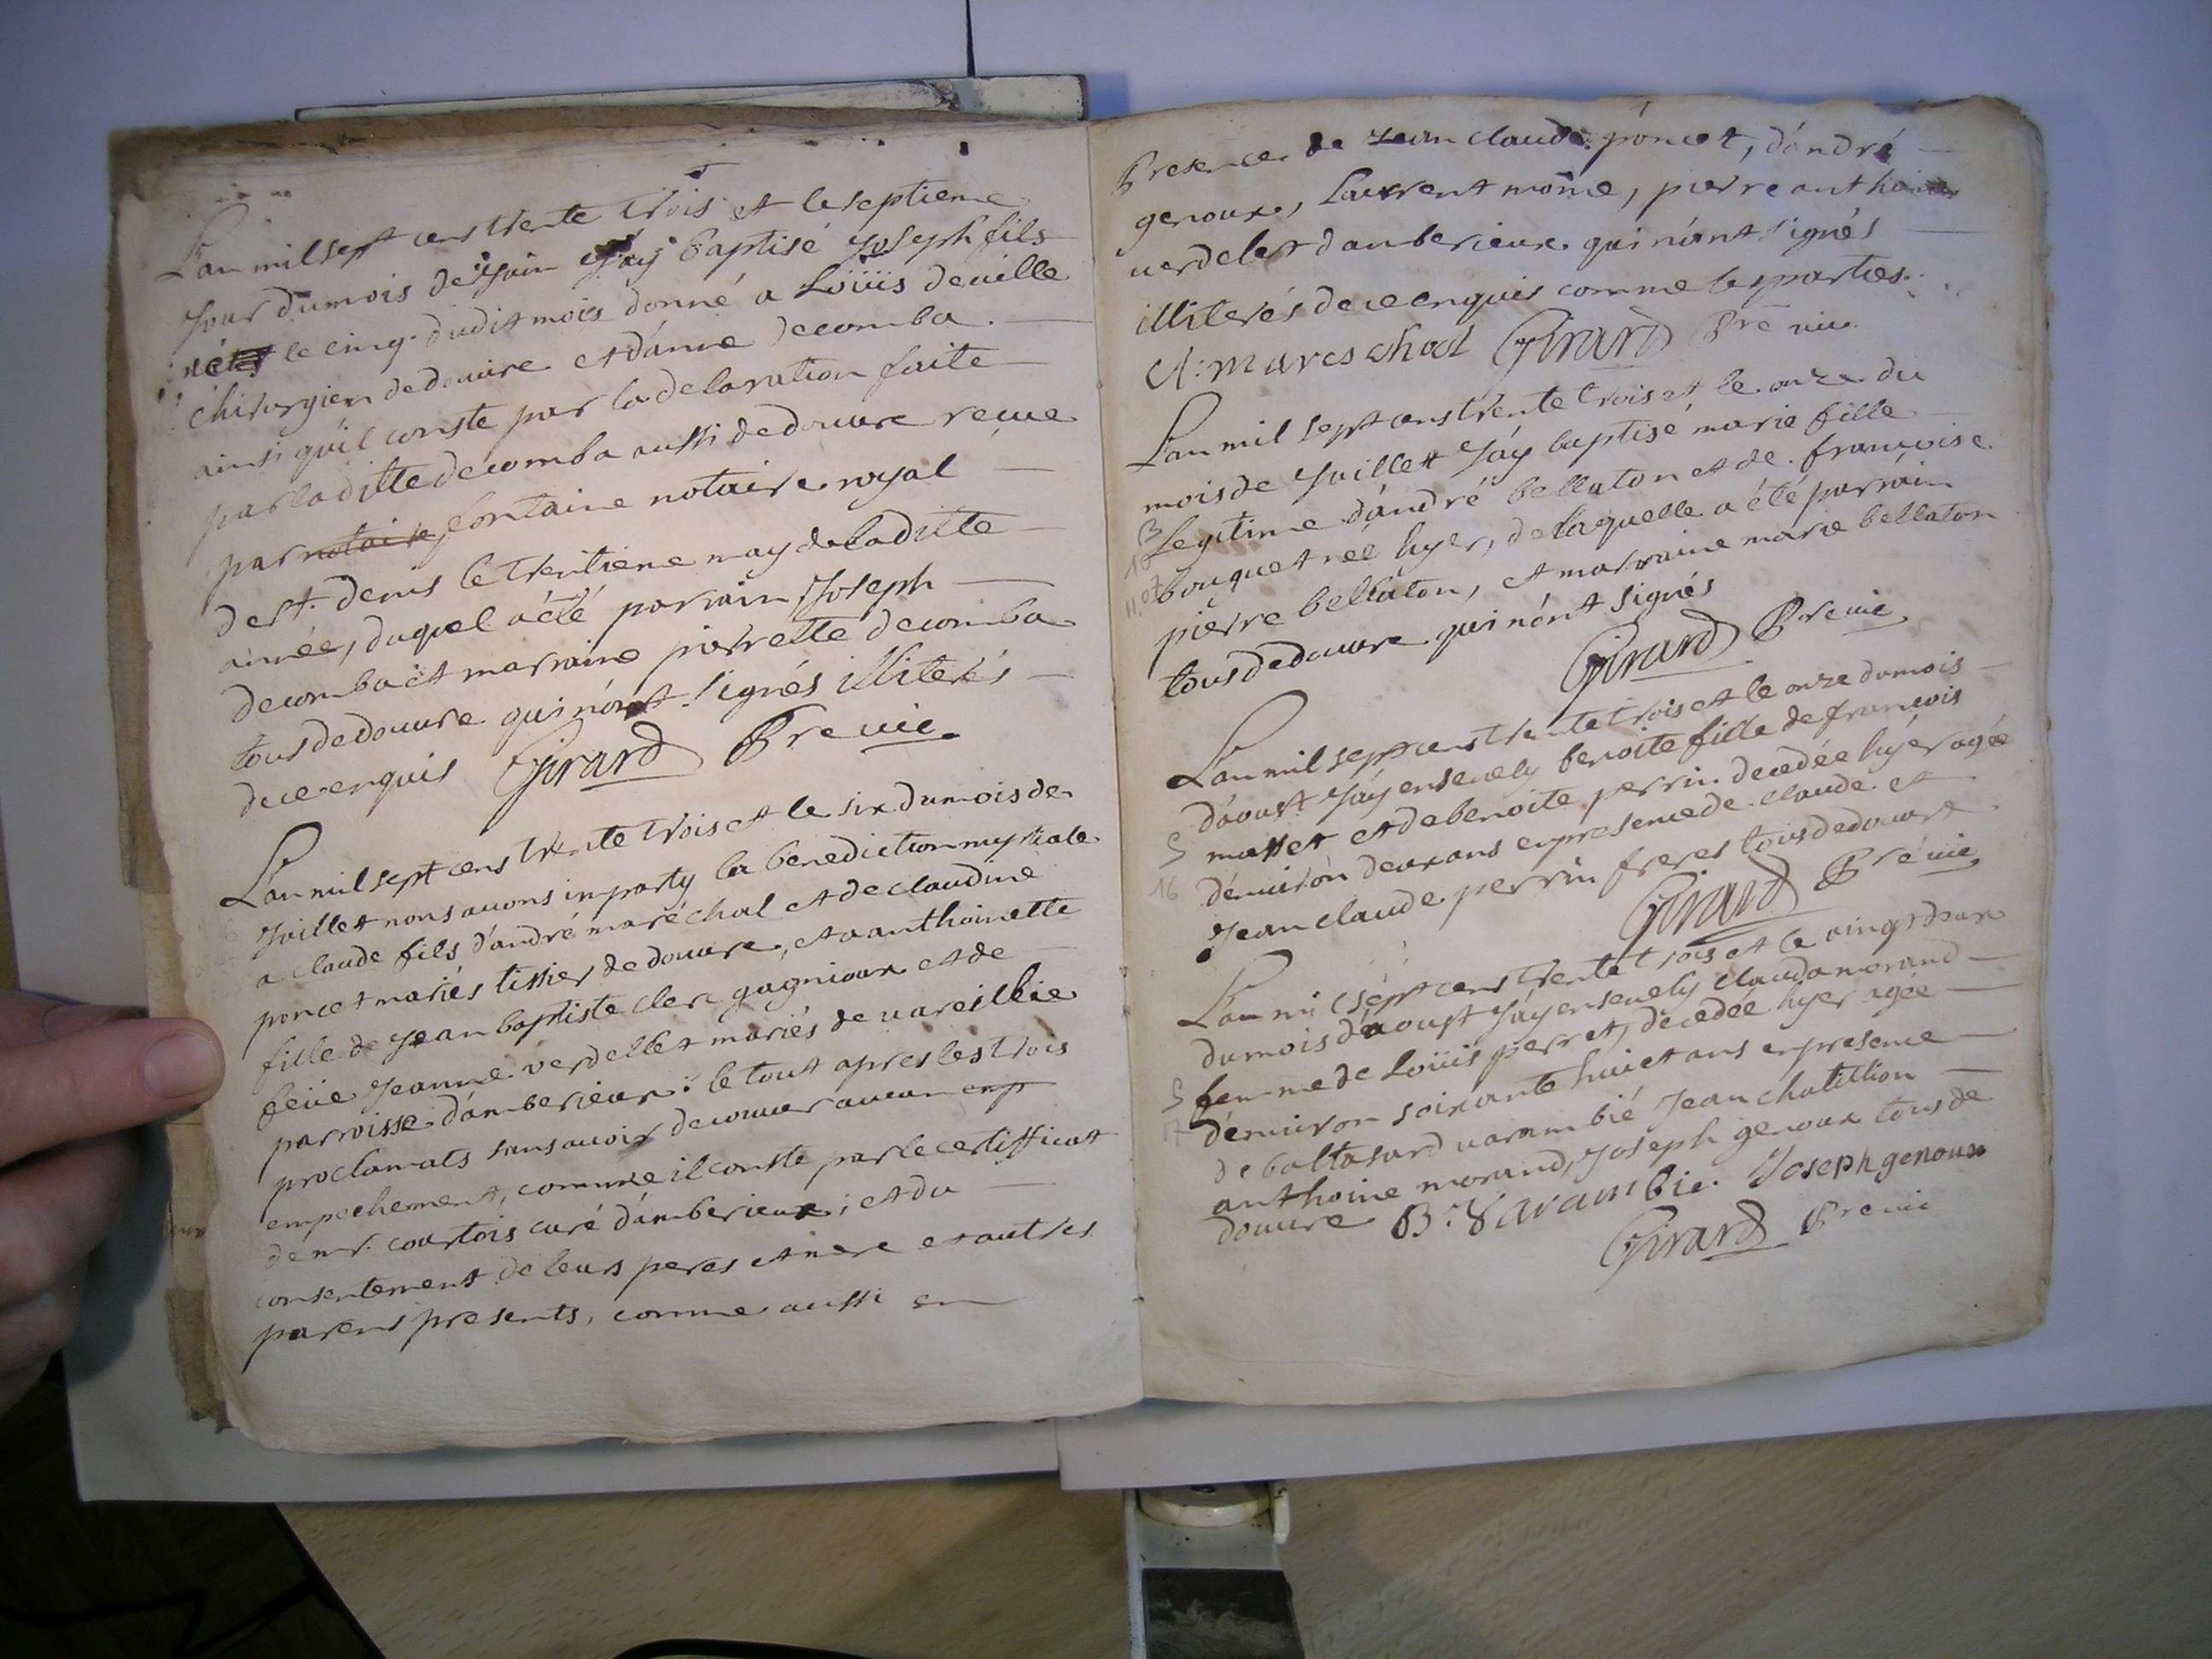 L'an mil sept cens trente trois et le septieme
Jour du mois de Juin J'ay baptisé Joseph fils
né le cinq. dudit mois donné a Loüis deuille
chirurgien de douure et d'anne decomba.
ainsi qu'il conste par la delaration faite
par la ditte decomba aussi de douure reçue
par notaire fontaine notaire royal
de st. denis le trentieme may de la ditte
année, duquel a été parrain Joseph
decomba et marraine pierrette decomba
tous de douure qui n'ont signés illiterés
de ce enquis Girard Pre vic.
L'an mil sept cens trente trois et le six du mois de
Juillet nous avons imparty la benediction nuptiale
a claude fils d'andré maréchal et de claudine
poncet mariés tissier de douure, et a anthoinette
fille de Jean baptiste clerc gagnioux et de
feüe Jeanne verdellet mariés de vareillie
parroisse d'amberieux: le tout apres les trois
proclamats sans avoir decouver aucun emp
empechement, comme il conste par le certifficat
de mr. courtois curé d'amberieux; et du
consentement de leurs peres et mere et autres
parens presents, comme aussi en
Presence de Jean claude poncet, d'andré
genoux, Laurrent môme, pierre anthoine
verdelet d'amberieux qui n'ont signés
illiterés de ce enquis comme les parties.
Cl: mareschal Girard Pre vic.
L'an mil sept cens trente trois et le onze du
mois de Juillet J'ay baptisé marie fille
B Legitime d'andré bellaton et de françoise
bouquet née hyer, de laquelle a été parrain
pierre bellaton, et marraine marie bellaton
tous de douure qui n'ont signés
Girard Pre vic.
L'an mil sept cens trente trois et le onze du mois
d'aoust J'ay ensevely benoite fille de françois
S masset et de benoite perrin decedée hyer agée
16 d'environ deux ans en presence de claude et
Jean claude perrin freres tous de douure
Girard Pre vic.
L'an mil sept cens trente trois et le vingt deux
du mois d'aoust J'ay ensevely clauda morand
S femme de Loüis perret, decedée hyer agée
17 d'environ soixante huict ans en presence
de baltasard varambié Jean chatillion
anthoine morand, Joseph genoux tous de
douure B: Varambie. Joseph genoux
Girard Pre vic